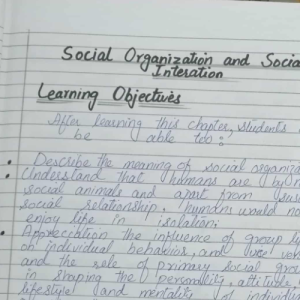 Social Organization and Socia
Interation
Learning Objectives
After learning this chapter, students
be able too :
Describe the meaning of social organiza
Understand that humans are by
social animals and apart from
social relationship, humans would no
enjoy life in isolation.
Appreciation the influence of group
on individual behavior, and
and the role of primary social gro
in shaping the personality, attitude
lifestyle and mentality of individ